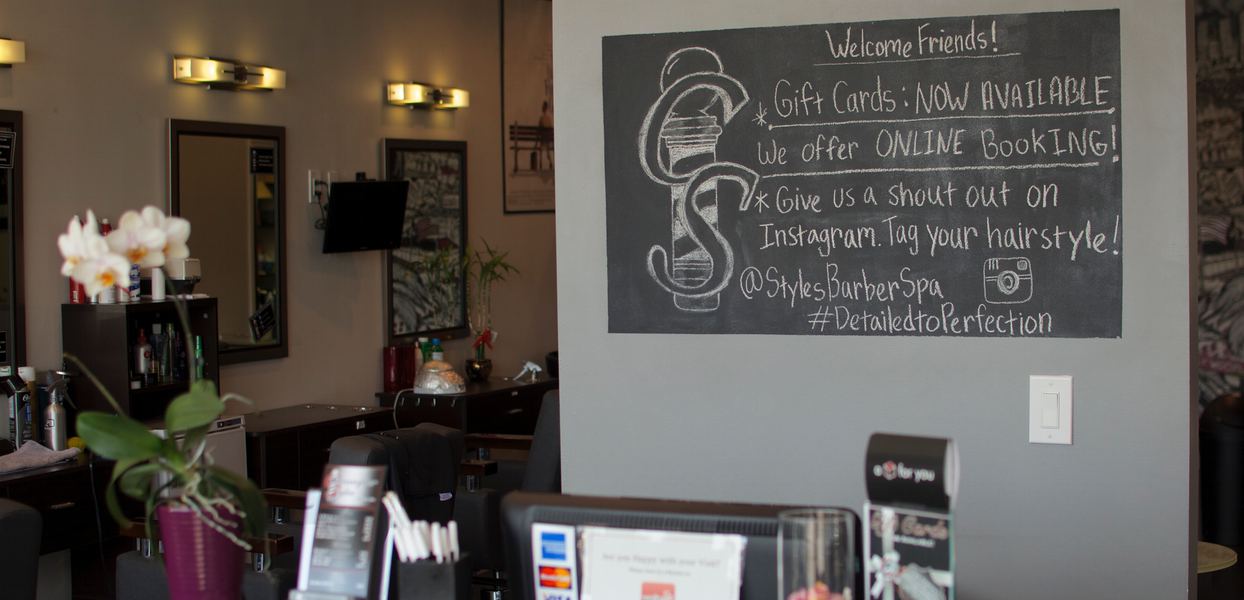 Welcome Friends!
* Gift Cards: NOW AVAILABLE
We offer ONLINE BOOKING!
* Give us a shout out on
Instagram. Tag your hairstyle!
@StylesBarberSpa
#DetailedtoPerfection
for you
Are you Happy with your Visit?
MasterCard
VISA